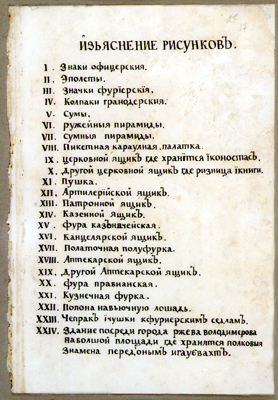 17
ИЗЬЯСНЕНИЕ РИСУНКОВЪ.
I. Знаки офицерския.
II. Эполеты.
III. Значки фурїерскїя.
IV. Колпаки гранодерския.
V. Сумы.
VI. ружейныя пирамиды.
VII. Сумныя пирамиды.
VIII. Пикетная караулная, палатка.
IX. церковной ящикъ где хранится їконостасъ.
X. Другой церковной ящикъ где ризница їкниги.
XI. Пушка.
XII. Артилерійской ящикъ.
XIII. Патронной ящикъ.
XIV. Казенной ящикъ.
XV. фура казначейская.
XVI. Канцелярской ящикъ.
XVII. Полаточная полуфурка.
XVIII. Аптекарской ящикъ.
XIX. Другой Аптекарской ящикъ.
XX. фура правианская.
XXI. Кузнечная фурка.
XXII. Попона навьючную лошадь.
XXIII. Чепракъ їчушки кфуриерскимъ седлам.
XXIV. Здание посреди города ржева володимерова
наболшой площади где хранятся полковыя
Знамена передоныммъ игауѣвахтъ.